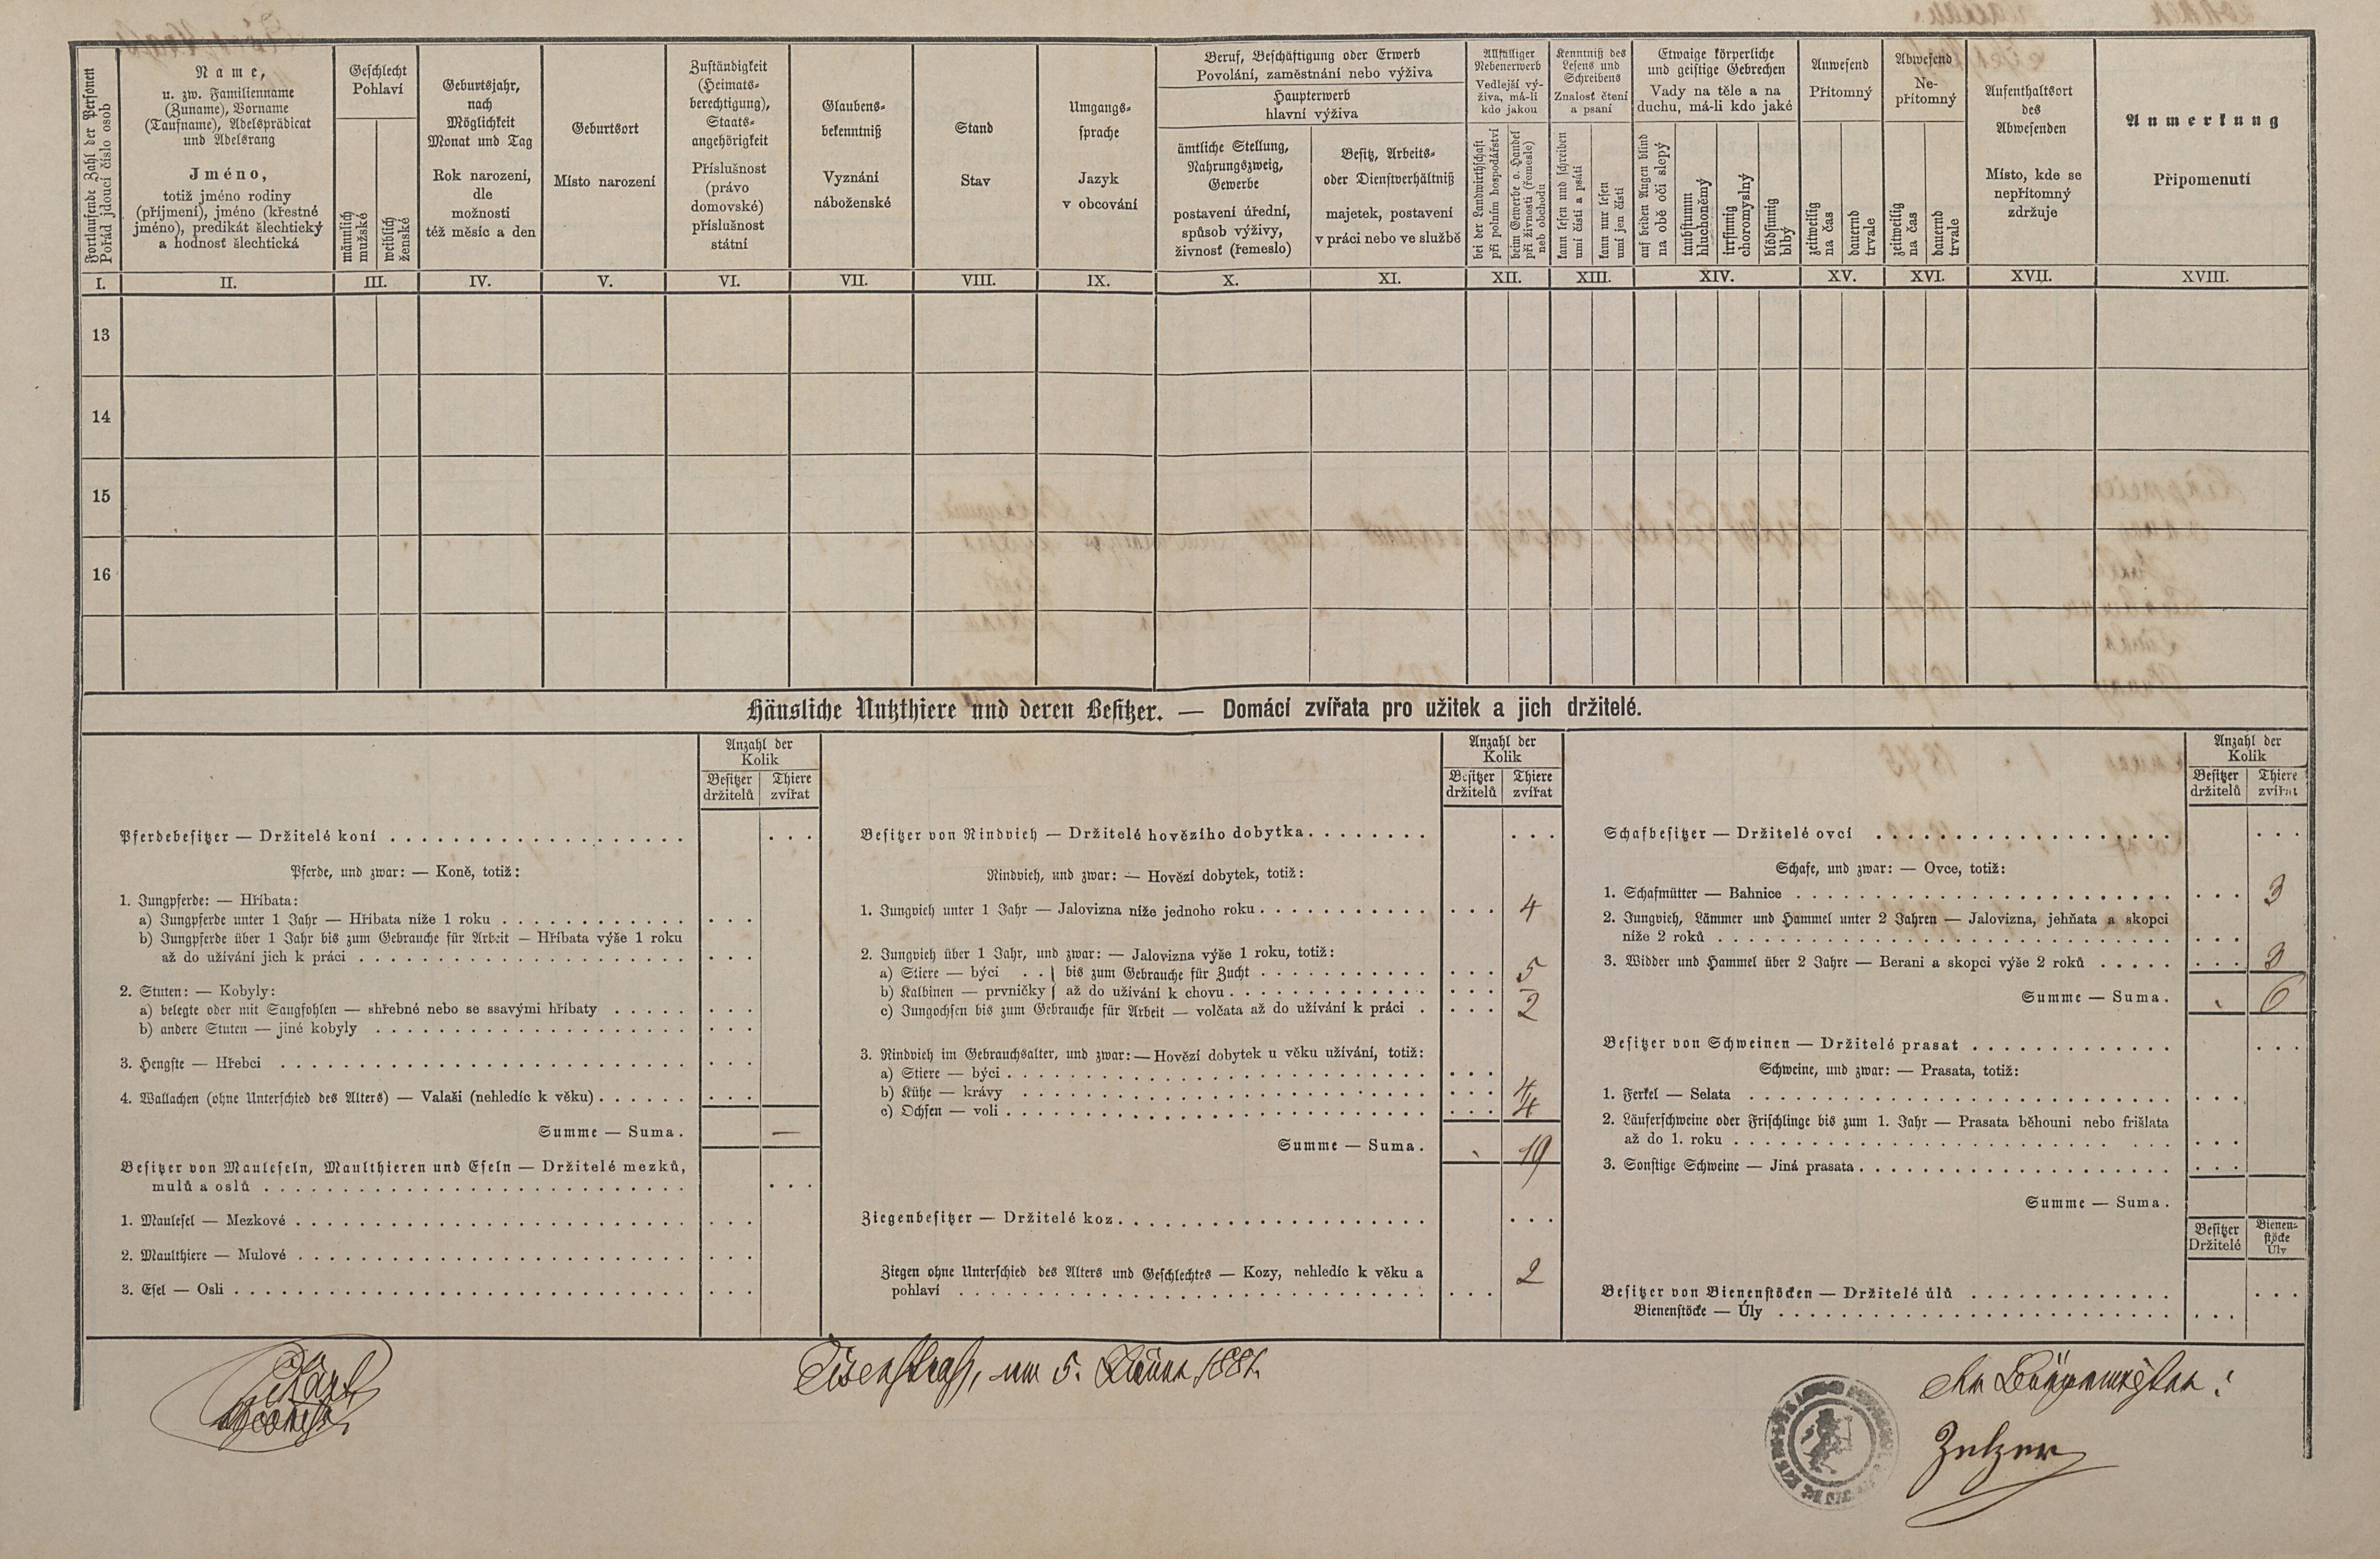 Fortlaufende Zahl der Personen
Pořad jdoucí číslo osob
Name,
u. zw. Familienname
(Zuname), Vorname
(Taufname), Adelsprädicat
und Adelsrang
Jméno,
totiž jméno rodiny
(příjmení), jméno (křestné
jméno), predikát šlechtický
a hodnosť šlechtická
Geschlecht
Pohlaví
männlich
mužské
weiblich
ženské
Geburtsjahr,
nach
Möglichkeit
Monat und Tag
Rok narození,
dle
možnosti
též měsíc a den
Geburtsort
Místo narození
Zuständigkeit
(Heimats-
berechtigung),
Staats-
angehörigkeit
Příslušnost
(právo
domovské)
příslušnost
státní
Glaubens-
bekenntniß
Vyznání
náboženské
Stand
Stav
Umgangs-
sprache
Jazyk
v obcování
Beruf, Beschäftigung oder Erwerb
Povolání, zaměstnání nebo výživa
Haupterwerb
hlavní výživa
ämtliche Stellung,
Nahrungszweig,
Gewerbe
postavení úřední,
spůsob výživy,
živnosť (řemeslo)
Besitz, Arbeits-
oder Dienstverhältniß
majetek, postavení
v práci nebo ve službě
Allfälliger
Nebenerwerb
Vedlejší vý-
živa, má-li
kdo jakou
bei der Landwirthschaft
při polním hospodářství
beim Gewerbe o. Handel
při živnosti (řemesle)
neb obchodu
Kenntniß des
Lesens und
Schreibens
Znalosť čtení
a psaní
kann lesen und schreiben
umí čísti a psáti
kann nur lesen
umí jen čísti
Etwaige körperliche
und geistige Gebrechen
Vady na těle a na
duchu, má-li kdo jaké
auf beiden Augen blind
na obě oči slepý
taubstumm
hluchoněmý
irrsinnig
choromyslný
blödsinnig
blbý
Anwesend
Přítomný
zeitweilig
na čas
dauernd
trvale
Abwesend
Ne-
přítomný
zeitweilig
na čas
dauernd
trvale
Aufenthaltsort
des
Abwesenden
Místo, kde se
nepřítomný
zdržuje
Anmerkung
Připomenutí
I. II. III. IV. V. VI. VII. VIII. IX. X. XI. XII. XIII. XIV. XV. XVI. XVII. XVIII.
13
14
15
16
Häusliche Nutzthiere und deren Besitzer. — Domácí zvířata pro užitek a jich držitelé.
Anzahl der
Kolik
Besitzer
držitelů
Thiere
zvířat
Pferdebesitzer — Držitelé koní
Pferde, und zwar: — Koně, totiž:
1. Jungpferde: — Hříbata:
a) Jungpferde unter 1 Jahr — Hříbata níže 1 roku
b) Jungpferde über 1 Jahr bis zum Gebrauche für Arbeit — Hříbata výše 1 roku
až do užívání jich k práci
2. Stuten: — Kobyly:
a) belegte oder mit Saugfohlen — shřebné nebo se ssavými hříbaty
b) andere Stuten — jiné kobyly
3. Hengste — Hřebci
4. Wallachen (ohne Unterschied des Alters) — Valaši (nehledíc k věku)
Summe — Suma. —
Besitzer von Mauleseln, Maulthieren und Eseln — Držitelé mezků,
mulů a oslů
1. Maulesel — Mezkové
2. Maulthiere — Mulové
3. Esel — Osli
Anzahl der
Kolik
Besitzer
držitelů
Thiere
zvířat
Besitzer von Rindvieh — Držitelé hovězího dobytka
Rindvieh, und zwar: — Hovězí dobytek, totiž:
1. Jungvieh unter 1 Jahr — Jalovizna níže jednoho roku 4
2. Jungvieh über 1 Jahr, und zwar: — Jalovizna výše 1 roku, totiž:
a) Stiere — býci . . } bis zum Gebrauche für Zucht
b) Kalbinen — prvničky } až do užívání k chovu 5
c) Jungochsen bis zum Gebrauche für Arbeit — volčata až do užívání k práci 2
3. Rindvieh im Gebrauchsalter, und zwar: — Hovězí dobytek u věku užívání, totiž:
a) Stiere — býci
b) Kühe — krávy 4
c) Ochsen — voli 4
Summe — Suma. 19
Ziegenbesitzer — Držitelé koz
Ziegen ohne Unterschied des Alters und Geschlechtes — Kozy, nehledíc k věku a
pohlaví 2
Anzahl der
Kolik
Besitzer
držitelů
Thiere
zvířat
Schafbesitzer — Držitelé ovcí
Schafe, und zwar: — Ovce, totiž:
1. Schafmütter — Bahnice 3
2. Jungvieh, Lämmer und Hammel unter 2 Jahren — Jalovizna, jehňata a skopci
níže 2 roků
3. Widder und Hammel über 2 Jahre — Berani a skopci výše 2 roků 3
Summe — Suma. 6
Besitzer von Schweinen — Držitelé prasat
Schweine, und zwar: — Prasata, totiž:
1. Ferkel — Selata
2. Läuferschweine oder Frischlinge bis zum 1. Jahr — Prasata běhouni nebo frišlata
až do 1. roku
3. Sonstige Schweine — Jiná prasata
Summe — Suma.
Besitzer
Držitelé
Bienen-
stöcke
Úly
Besitzer von Bienenstöcken — Držitelé úlů
Bienenstöcke — Úly
Eisenstraß, am 5. Jänner 1881.
Zelzer